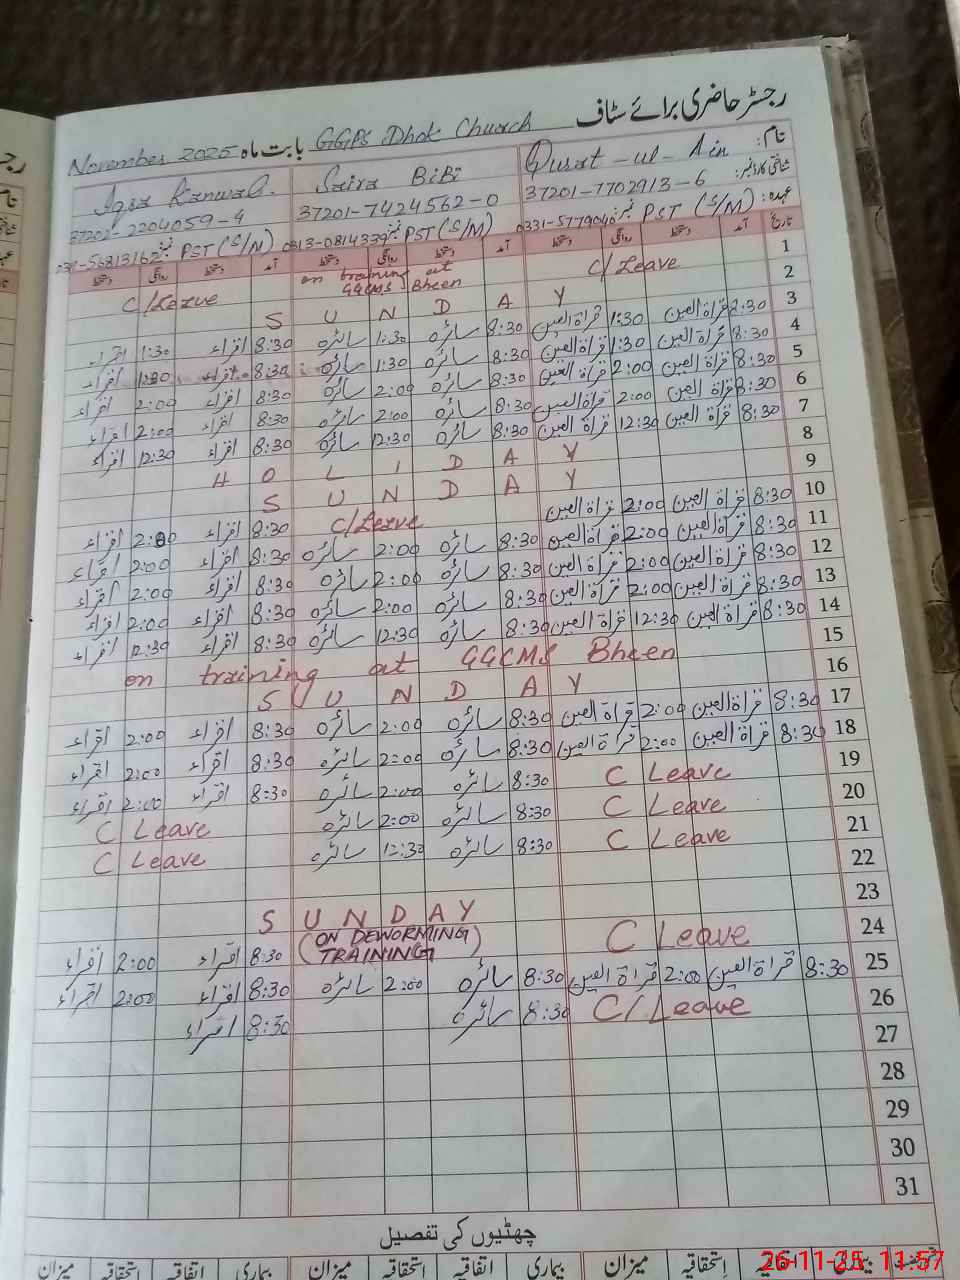 رجسٹر حاضری برائے سٹاف
November 2025 بابت ماہ GGPS Dhok Church
نام: Qurat-ul-Ain Saira BiBi Iqra Kanwal
شناختی کارڈ نمبر: 37201-7702913-6 37201-7424562-0 37202-2204059-4
عہدہ: PST (S/M) نمبر: 0331-5779046 PST (S/M) نمبر: 0313-0814339 PST (S/M) نمبر:
تاریخ آمد دستخط روانگی دستخط آمد دستخط روانگی دستخط آمد دستخط روانگی دستخط
1 C/Leave on training at GGCMS Bheen C/Leave
2 S U N D A Y
3 2:30 قراۃ العین 1:30 قراۃ العین 8:30 سائرہ 1:30 سائرہ 8:30 اقراء 1:30 اقراء
4 8:30 قراۃ العین 1:30 قراۃ العین 8:30 سائرہ 1:30 سائرہ 8:30 اقراء 1:30 اقراء
5 8:30 قراۃ العین 2:00 قراۃ العین 8:30 سائرہ 2:00 سائرہ 8:30 اقراء 2:00 اقراء
6 8:30 قراۃ العین 2:00 قراۃ العین 8:30 سائرہ 2:00 سائرہ 8:30 اقراء 2:00 اقراء
7 8:30 قراۃ العین 12:30 قراۃ العین 8:30 سائرہ 12:30 سائرہ 8:30 اقراء 12:30 اقراء
8 H O L I D A Y
9 S U N D A Y
10 8:30 قراۃ العین 2:00 قراۃ العین C/Leave 8:30 اقراء 2:00 اقراء
11 8:30 قراۃ العین 2:00 قراۃ العین 8:30 سائرہ 2:00 سائرہ 8:30 اقراء 2:00 اقراء
12 8:30 قراۃ العین 2:00 قراۃ العین 8:30 سائرہ 2:00 سائرہ 8:30 اقراء 2:00 اقراء
13 8:30 قراۃ العین 2:00 قراۃ العین 8:30 سائرہ 2:00 سائرہ 8:30 اقراء 2:00 اقراء
14 8:30 قراۃ العین 12:30 قراۃ العین 8:30 سائرہ 12:30 سائرہ 8:30 اقراء 12:30 اقراء
15 on training at GGCMS Bheen
16 S U N D A Y
17 8:30 قراۃ العین 2:00 قراۃ العین 8:30 سائرہ 2:00 سائرہ 8:30 اقراء 2:00 اقراء
18 8:30 قراۃ العین 2:00 قراۃ العین 8:30 سائرہ 2:00 سائرہ 8:30 اقراء 2:00 اقراء
19 C Leave 8:30 سائرہ 2:00 سائرہ 8:30 اقراء 2:00 اقراء
20 C Leave 8:30 سائرہ 2:00 سائرہ C Leave
21 C Leave 8:30 سائرہ 12:30 سائرہ C Leave
22
23 S U N D A Y
24 C Leave (ON DEWORMING TRAINING) 8:30 اقراء 2:00 اقراء
25 8:30 قراۃ العین 2:00 قراۃ العین 8:30 سائرہ 2:00 سائرہ 8:30 اقراء 2:00 اقراء
26 C/Leave 8:30 سائرہ 8:30 اقراء
27
28
29
30
31
چھٹیوں کی تفصیل
بیماری اتفاقیہ استحقاقیہ میزان بیماری اتفاقیہ استحقاقیہ میزان بیماری اتفاقیہ استحقاقیہ میزان
26-11-25 11:57